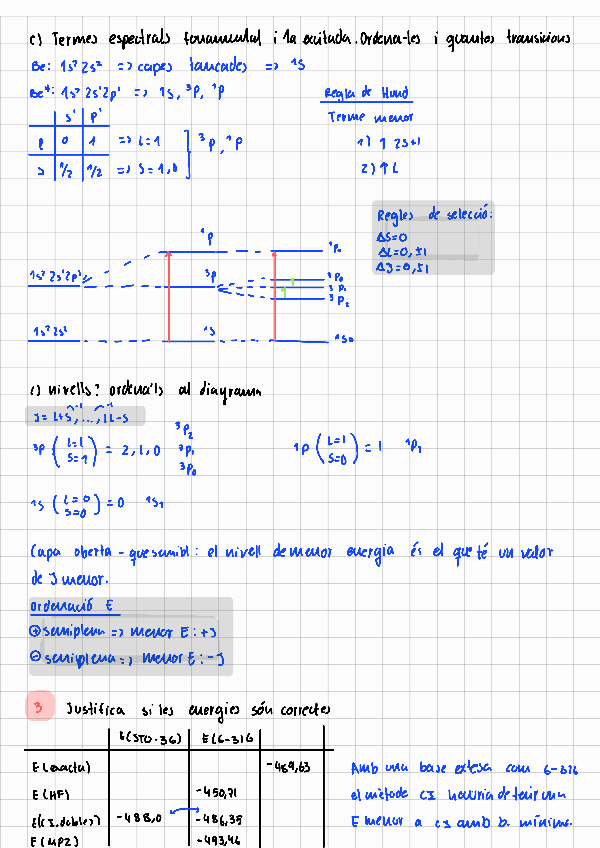 c) Termes espectrals fonamental i 1a excitada. Ordena-les i quantes transicions
Be: 1s² 2s² => capes tancades => ¹S
Be*: 1s² 2s¹ 2p¹ => 1S, ³P, ¹P
Regla de Hund
Terme menor
1) ↑ 2S+1
2) ↑ L
s¹ p¹
l 0 1 => L=1
s 1/2 1/2 => S=1,0
³P, ¹P
Regles de selecció:
ΔS=0
ΔL=0, ±1
ΔJ=0, ±1
¹P
1s² 2s¹ 2p¹
³P
³P₀
³P₁
³P₂
1s² 2s²
¹S
¹S₀
nivells? ordena'ls al diagrama
J= L+S, ..., |L-S
³P (L=1 S=1) = 2, 1, 0
³P₂
³P₁
³P₀
¹P (L=1 S=0) = 1 ¹P₁
¹S (L=0 S=0) = 0 ¹S₁
Capa oberta - : el nivell de menor energia és el que té un valor
de J menor.
Ordenació E
⊕ semiplena => menor E: +J
⊖ semiplena => menor E: -J
3 Justifica si les energies són correctes
E(STO-3G) E(6-31G
E(exacta) -489,63
E(HF) -450,71
E(CI, dobles) -488,0 -486,35
E(MP2) -493,46
Amb una base extesa com 6-31G
el mètode CI hauria de tenir una
E menor a CI amb b. mínima.